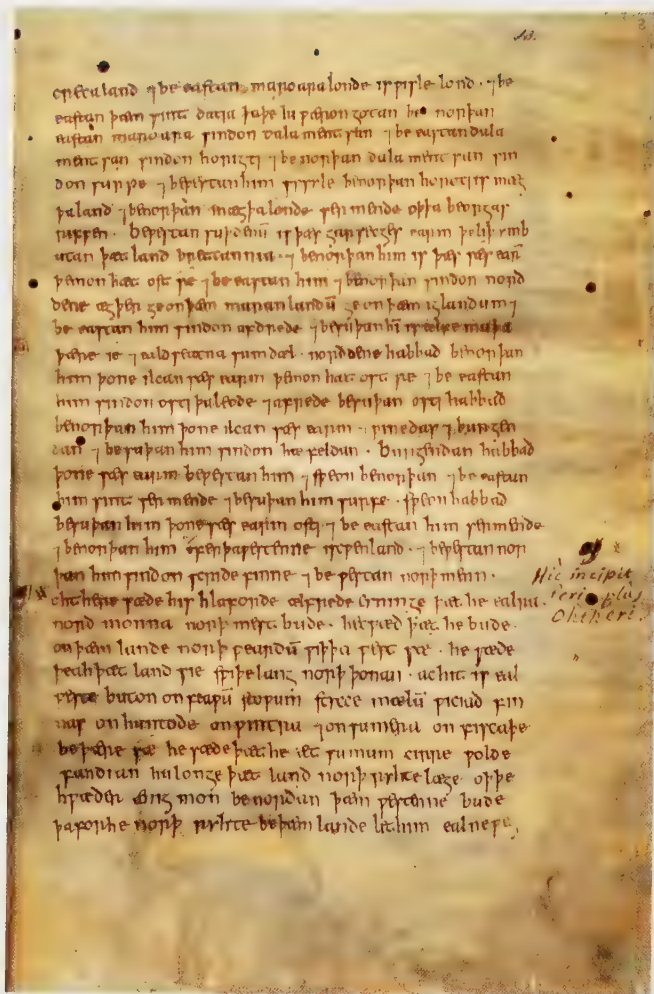 creca land ⁊ be eastan maroara londe is ƿisle lond · ⁊ be
eastan þæm sint datia þa þe iu ƿæron gotan be norþan
eastan maroara sindon dalamentsan ⁊ be eastan dala
mentsan sindon horigti ⁊ be norþan dalamentsan sin
don surpe ⁊ be ƿestan him sysyle be norþan horoti is mæg
þa land ⁊ be norþan mægþa londe sermende oþþa beorgas
riffen · beƿestan suþdenū is þæs garsecges earm þe liþ ymb
utan þæt land brettannia · ⁊ be norþan him is þæs sæs earm
þe mon hæt ost sæ ⁊ be eastan him ⁊ be norþan sindon norð
dene ægþer ge on þæm maran landū ge on þæm iglandum ⁊
be eastan him sindon afdrede ⁊ be suþan hī is ælfe muþa
þære ie ⁊ eald seaxna sum dæl · norðdene habbað be norþan
him þone ilcan sæs earm þe mon hæt ost sæ ⁊ be eastan
him sindon osti þa leode ⁊ afrede be suþan osti habbað
be norþan him þone ilcan sæs earm ⁊ ƿinedas ⁊ burgen
dan ⁊ be suþan him sindon hæfeldan · burgendan habbað
þone sæs earm be ƿestan him ⁊ sƿeon be norþan ⁊ be eastan
him sint sermende ⁊ be suþan him surfe · sƿeon habbað
be suþan him þone sæs earm osti ⁊ be eastan him sermende
⁊ be norþan him ofer þa ƿestenne is cƿenland · ⁊ be ƿestan nor
þan him sindon scride finne ⁊ be ƿestan norþmenn ·
ohthere sæde his hlaforde ælfrede cyninge þæt he ealra
norð monna norþ mest bude · he cƿæð þæt he bude ·
on þæm lande norþ ƿeardū ƿiþ þa ƿest sæ · he sæde
þeah þæt land sie sƿiþe lang norþ þonan · ac hit is eal
ƿeste buton on feaƿū stoƿum stycce mælū ƿiciað fin
nas on huntoðe on ƿintra ⁊ on sumera on fiscaþe
be þære sæ he sæde þæt he æt sumum cirre ƿolde
fandian hu longe þæt land norþ ryhte læge oþþe
hƿæðer ænig mon be norðan þæm ƿestenne bude
þa for he norþ ryhte be þæm lande let him ealne ƿe
Hic incipit
Ohtheri